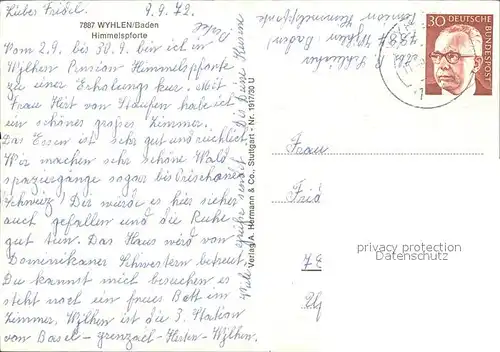 Lieber Fridel. 9.9.72.
7887 WYHLEN/Baden
Himmelspforte
Vom 2.9. bis 30.9. bin ich in
Wylhen Pension Himmelspforte
zu einer Erholungs kur. Mit
Frau Hirt von Staufen habe ich
ein schönes großes Zimmer.
Das Essen ist sehr gut und reichlich
Wir machen sehr schöne Wald
spaziergänge sogar bis
Schweiz! Dir würde es hier sicher
auch gefallen und die Ruhe
gut tun. Das Haus wird von
Dominikaner Schwestern betreut
Du kannst mich besuchen es
steht noch ein freies Bett im
Zimmer, Wylhen ist die 3. Station
von Basel - Grenzach - Herten - Wylhen.
Viele Grüße sendet Dir Deine
Verlag A. Hermann & Co., Stuttgart - Nr. 191/730 U
7887 Wylhen (Baden)
Pension Himmelspforte
30 DEUTSCHE
BUNDESPOST
Frau
Frid
78
privacy protection
Datenschutz